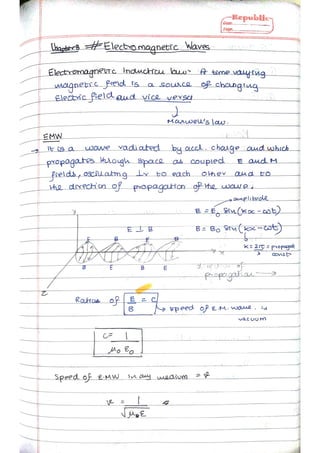 Republic
Date:
Page:
Chapter 8 # Electromagnetic Waves
Electromagnetic Induction law- A time varying
magnetic field is a source of changing
Electric field and vice versa
Maxwell's law.
EMW
→ It is a wave radiated by accl. charge and which
propagates through space as coupled E and M
fields, oscillating ⊥r to each other and to
the direction of propagation of the wave.
amplitude
Y E = E₀ Sin(kx-ωt)
E ⊥ B B = B₀ Sin(kx-ωt)
E B E B k = 2π = propagat
λ const
B E B E x
propagation →
Z
Ratio of E = C
B → Speed of E.M. wave in
vacuum
C = 1
μ₀ ε₀
Speed of EMW in any medium = v
v = 1
√με